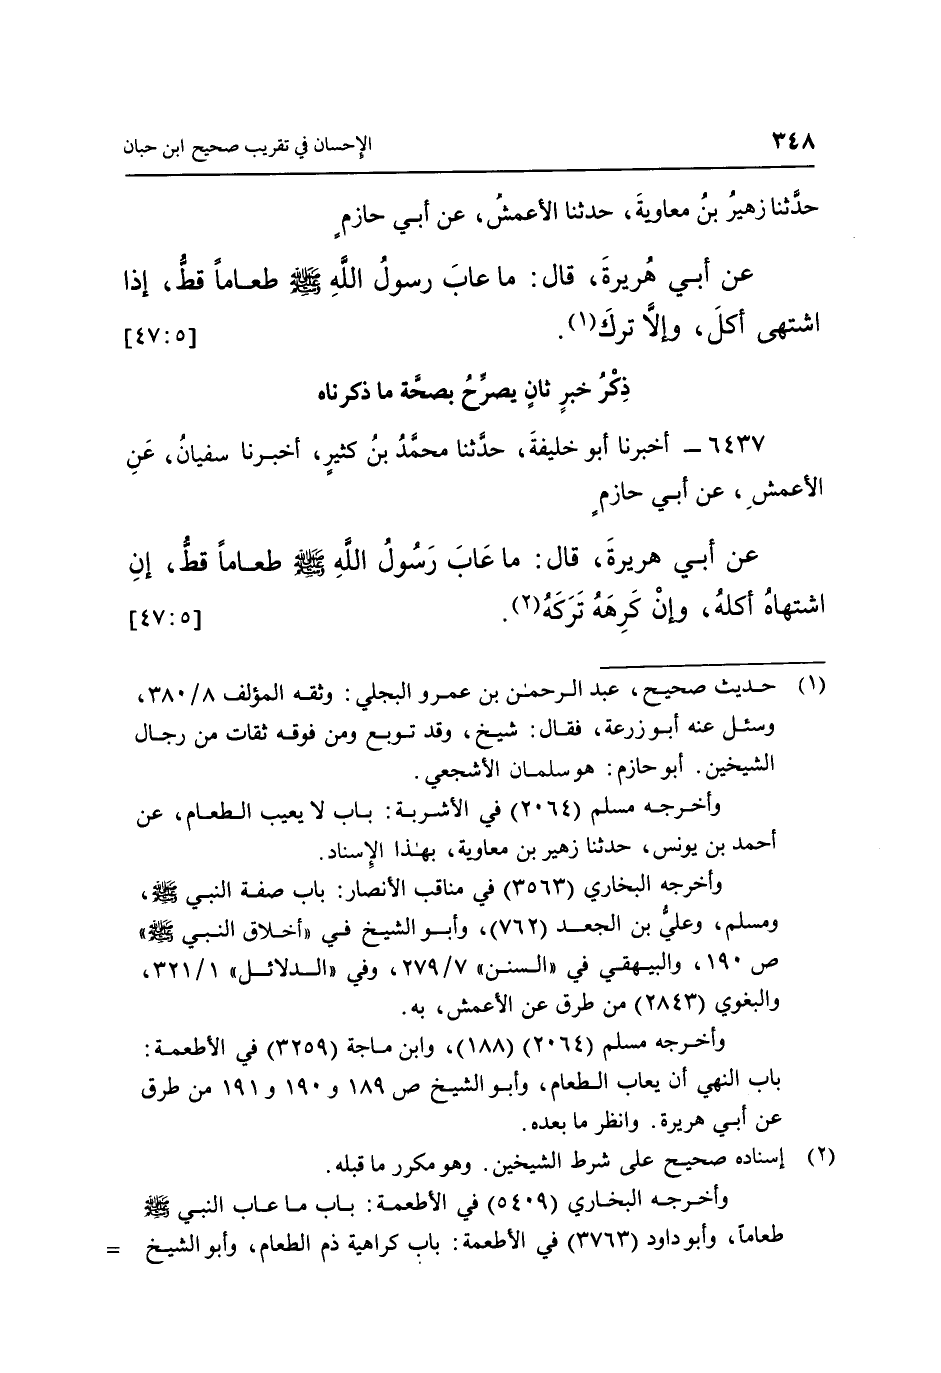 ٣٤٨ الإحسان في تقريب صحيح ابن حبان
حدَّثنا زهيرُ بنُ معاويةَ، حدثنا الأعمشُ، عن أبي حازمٍ
عن أبي هُريرةَ، قال: ما عابَ رسولُ اللَّهِ ﷺ طعاماً قطُّ، إذا
اشتهى أكلَ، وإلاَّ تركَ(١). [٤٧:٥]
ذِكْرُ خبرٍ ثانٍ يصرِّحُ بصحَّة ما ذكرناه
٦٤٣٧ ــ أخبرنا أبو خليفةَ، حدَّثنا محمَّدُ بنُ كثيرٍ، أخبرنا سفيانُ، عَنِ
الأعمشِ، عن أبي حازمٍ
عن أبي هريرةَ، قال: ما عَابَ رَسُولُ اللَّهِ ﷺ طعاماً قطُّ، إنِ
اشتهاهُ أكلهُ، وإنْ كَرِهَهُ تَرَكَهُ(٢). [٤٧:٥]
(١) حديث صحيح، عبد الرحمٰن بن عمرو البجلي: وثقه المؤلف ٣٨٠/٨،
وسئل عنه أبو زرعة، فقال: شيخ، وقد توبع ومن فوقه ثقات من رجال
الشيخين. أبو حازم: هو سلمان الأشجعي.
وأخرجه مسلم (٢٠٦٤) في الأشربة: باب لا يعيب الطعام، عن
أحمد بن يونس، حدثنا زهير بن معاوية، بهٰذا الإسناد.
وأخرجه البخاري (٣٥٦٣) في مناقب الأنصار: باب صفة النبي ﷺ،
ومسلم، وعليُّ بن الجعد (٧٦٢)، وأبو الشيخ في «أخلاق النبي ﷺ»
ص ١٩٠، والبيهقي في «السنن» ٢٧٩/٧، وفي «الدلائل» ٣٢١/١،
والبغوي (٢٨٤٣) من طرق عن الأعمش، به.
وأخرجه مسلم (٢٠٦٤) (١٨٨)، وابن ماجة (٣٢٥٩) في الأطعمة:
باب النهي أن يعاب الطعام، وأبو الشيخ ص ١٨٩ و ١٩٠ و ١٩١ من طرق
عن أبي هريرة. وانظر ما بعده.
(٢) إسناده صحيح على شرط الشيخين. وهو مكرر ما قبله.
وأخرجه البخاري (٥٤٠٩) في الأطعمة: باب ما عاب النبي ﷺ
طعاماً، وأبو داود (٣٧٦٣) في الأطعمة: باب كراهية ذم الطعام، وأبو الشيخ =